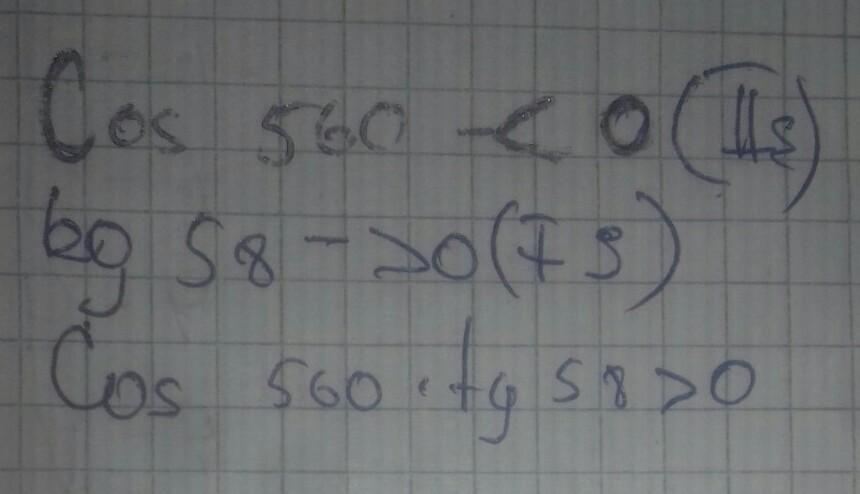 Cos 560 - < 0 (IIs)
tg 58 - >0 (I s)
Cos 560 · tg 58 > 0